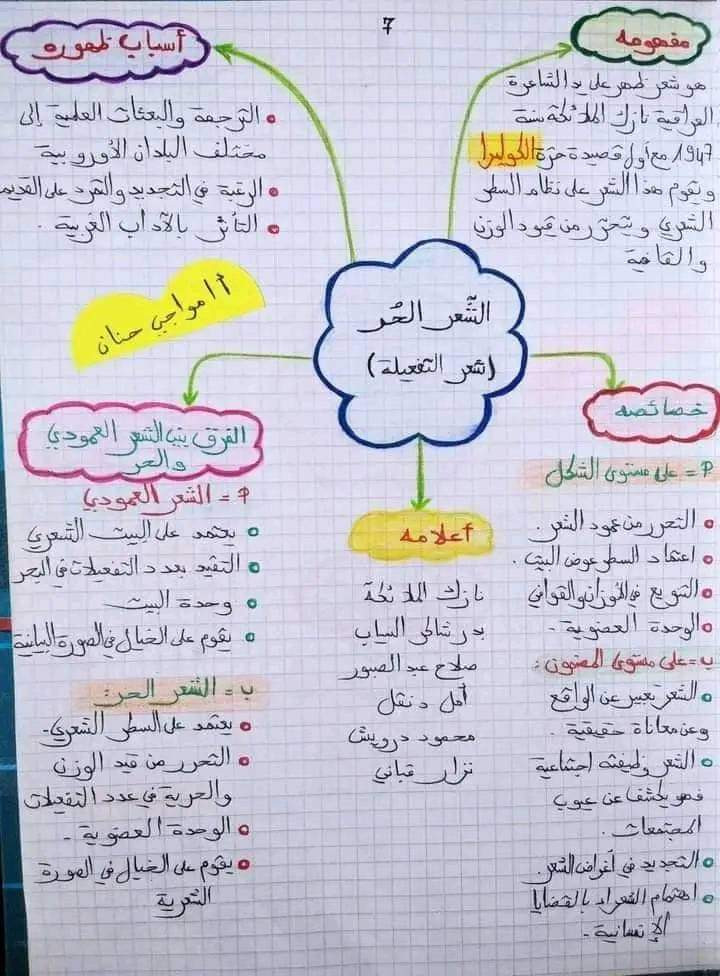 7
مفهومه
هو شعر ظهر على يد الشاعرة
العراقية نازك الملائكة سنة
1947 مع أول قصيدة حرة الكوليرا
ويقوم هذا الشعر على نظام السطر
الشعري ويتحرر من قيود الوزن
والقافية
أسباب ظهوره
الترجمة والبعثات العلمية إلى
مختلف البلدان الأوروبية
الرغبة في التجديد والتمرد على القديم
التأثر بالآداب الغربية .
الشّعر الحُر
(شعر التفعيلة)
أ امواجي حنان
خصائصه
أ = على مستوى الشكل
التحرر من عمود الشعر .
اعتماد السطر عوض البيت .
التنويع في الأوزان والقوافي
الوحدة العضوية -
ب = على مستوى المضمون :
الشعر تعبير عن الواقع
وعن معاناة حقيقية .
الشعر وظيفته اجتماعية
فهو يكشف عن عيوب
المجتمعات .
التجديد في أغراض الشعر .
اهتمام الشعراء بالقضايا
الإنسانية -
أعلامه
نازك الملائكة
بدر شاكر السياب
صلاح عبد الصبور
أمل دنقل
محمود درويش
نزار قباني
الفرق بين الشعر العمودي
والحر
أ = الشعر العمودي
يعتمد على البيت الشعري
التقيد بعدد التفعيلات في البحر
وحدة البيت
يقوم على الخيال في الصورة البيانية
ب = الشعر الحر :
يعتمد على السطر الشعري -
التحرر من قيد الوزن
والحرية في عدد التفعيلات
الوحدة العضوية -
يقوم على الخيال في الصورة
الشعرية